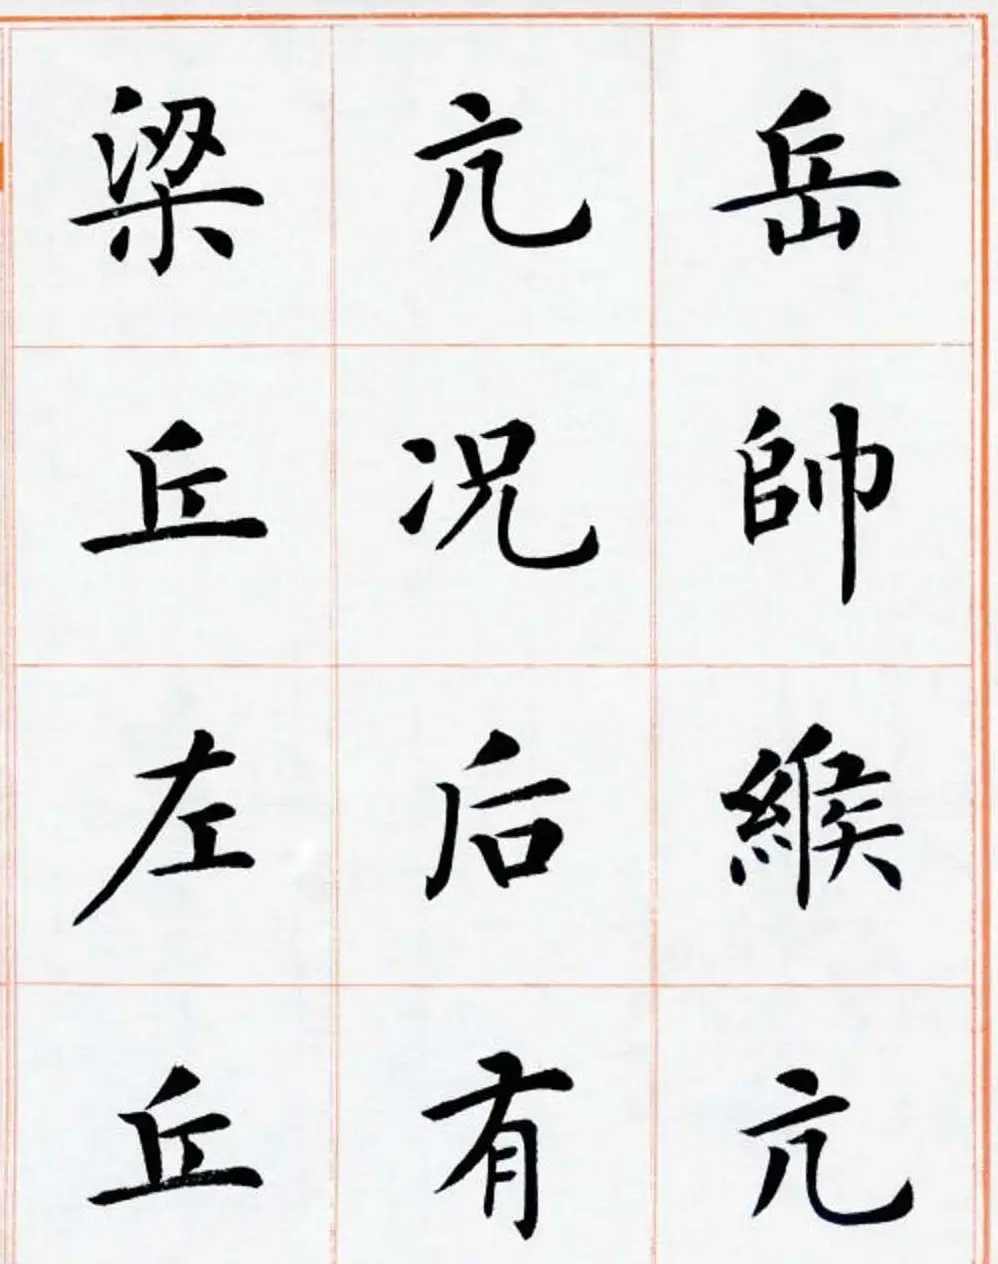 岳帥緱亢
亢况后有
梁丘左丘